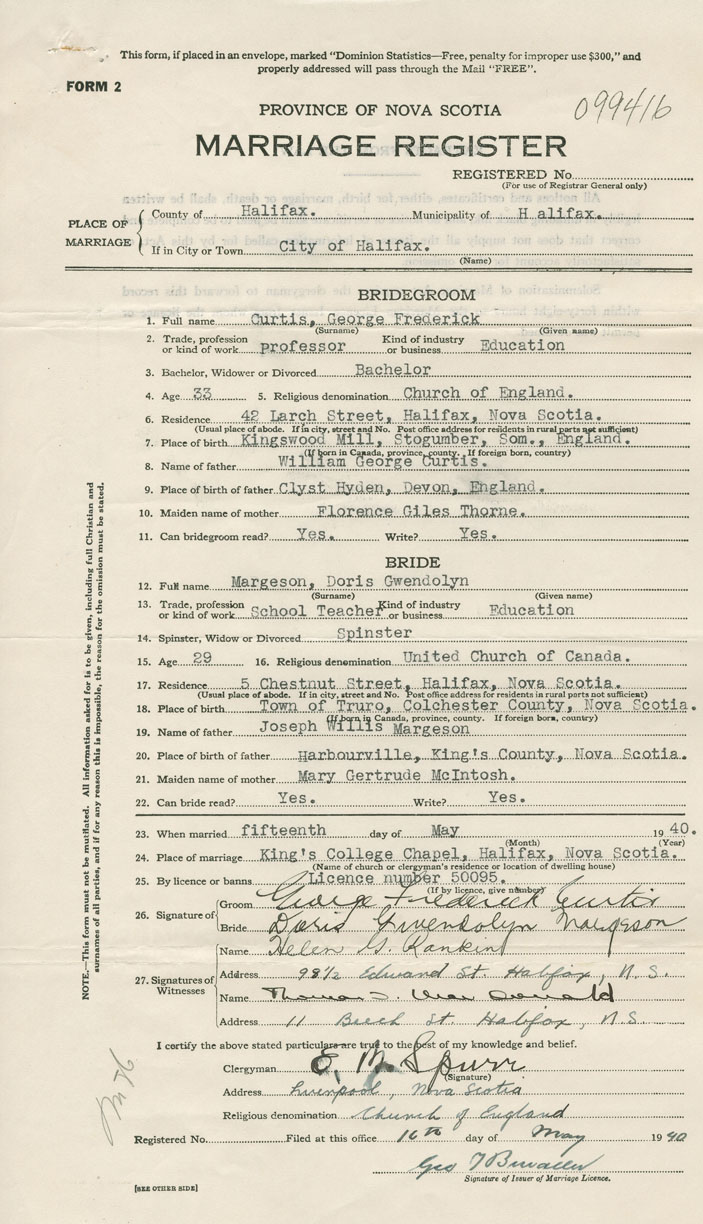 This form, if placed in an envelope, marked "Dominion Statistics—Free, penalty for improper use $300," and
properly addressed will pass through the Mail "FREE".
FORM 2
099416
PROVINCE OF NOVA SCOTIA
MARRIAGE REGISTER
REGISTERED No.
(For use of Registrar General only)
PLACE OF MARRIAGE
County of Halifax. Municipality of H alifax.
If in City or Town City of Halifax.
(Name)
BRIDEGROOM
1. Full name Curtis, George Frederick
(Surname) (Given name)
2. Trade, profession or kind of work professor Kind of industry or business Education
3. Bachelor, Widower or Divorced Bachelor
4. Age 33 5. Religious denomination Church of England.
6. Residence 42 Larch Street, Halifax, Nova Scotia.
(Usual place of abode. If in city, street and No. Post office address for residents in rural parts not sufficient)
7. Place of birth Kingswood Mill, Stogumber, Som., England.
(If born in Canada, province, county. If foreign born, country)
8. Name of father William George Curtis.
9. Place of birth of father Clyst Hyden, Devon, England.
10. Maiden name of mother Florence Giles Thorne.
11. Can bridegroom read? Yes. Write? Yes.
BRIDE
12. Full name Margeson, Doris Gwendolyn
(Surname) (Given name)
13. Trade, profession or kind of work School Teacher Kind of industry or business Education
14. Spinster, Widow or Divorced Spinster
15. Age 29 16. Religious denomination United Church of Canada.
17. Residence 5 Chestnut Street, Halifax, Nova Scotia.
(Usual place of abode. If in city, street and No. Post office address for residents in rural parts not sufficient)
18. Place of birth Town of Truro, Colchester County, Nova Scotia.
(If born in Canada, province, county. If foreign born, country)
19. Name of father Joseph Willis Margeson
20. Place of birth of father Harbourville, King's County, Nova Scotia.
21. Maiden name of mother Mary Gertrude McIntosh.
22. Can bride read? Yes. Write? Yes.
23. When married fifteenth day of May 1940.
(Month) (Year)
24. Place of marriage King's College Chapel, Halifax, Nova Scotia.
(Name of church or clergyman's residence or location of dwelling house)
25. By licence or banns Licence number 50095.
(If by licence, give number)
26. Signature of
Groom George Frederick Curtis
Bride Doris Gwendolyn Margeson
27. Signatures of Witnesses
Name Helen G. Rankin
Address 98½ Edward St. Halifax, N.S.
Name Thomas
Address 11 Beech St. Halifax, N.S.
I certify the above stated particulars are true to the best of my knowledge and belief.
Clergyman E. M. Spurr
(Signature)
Address Liverpool, Nova Scotia
Religious denomination Church of England
Registered No. Filed at this office 16th day of May 1940
Geo
Signature of Issuer of Marriage Licence.
[SEE OTHER SIDE]
NOTE.—This form must not be mutilated. All information asked for is to be given, including full Christian and
surnames of all parties, and if for any reason this is impossible, the reason for the omission must be stated.